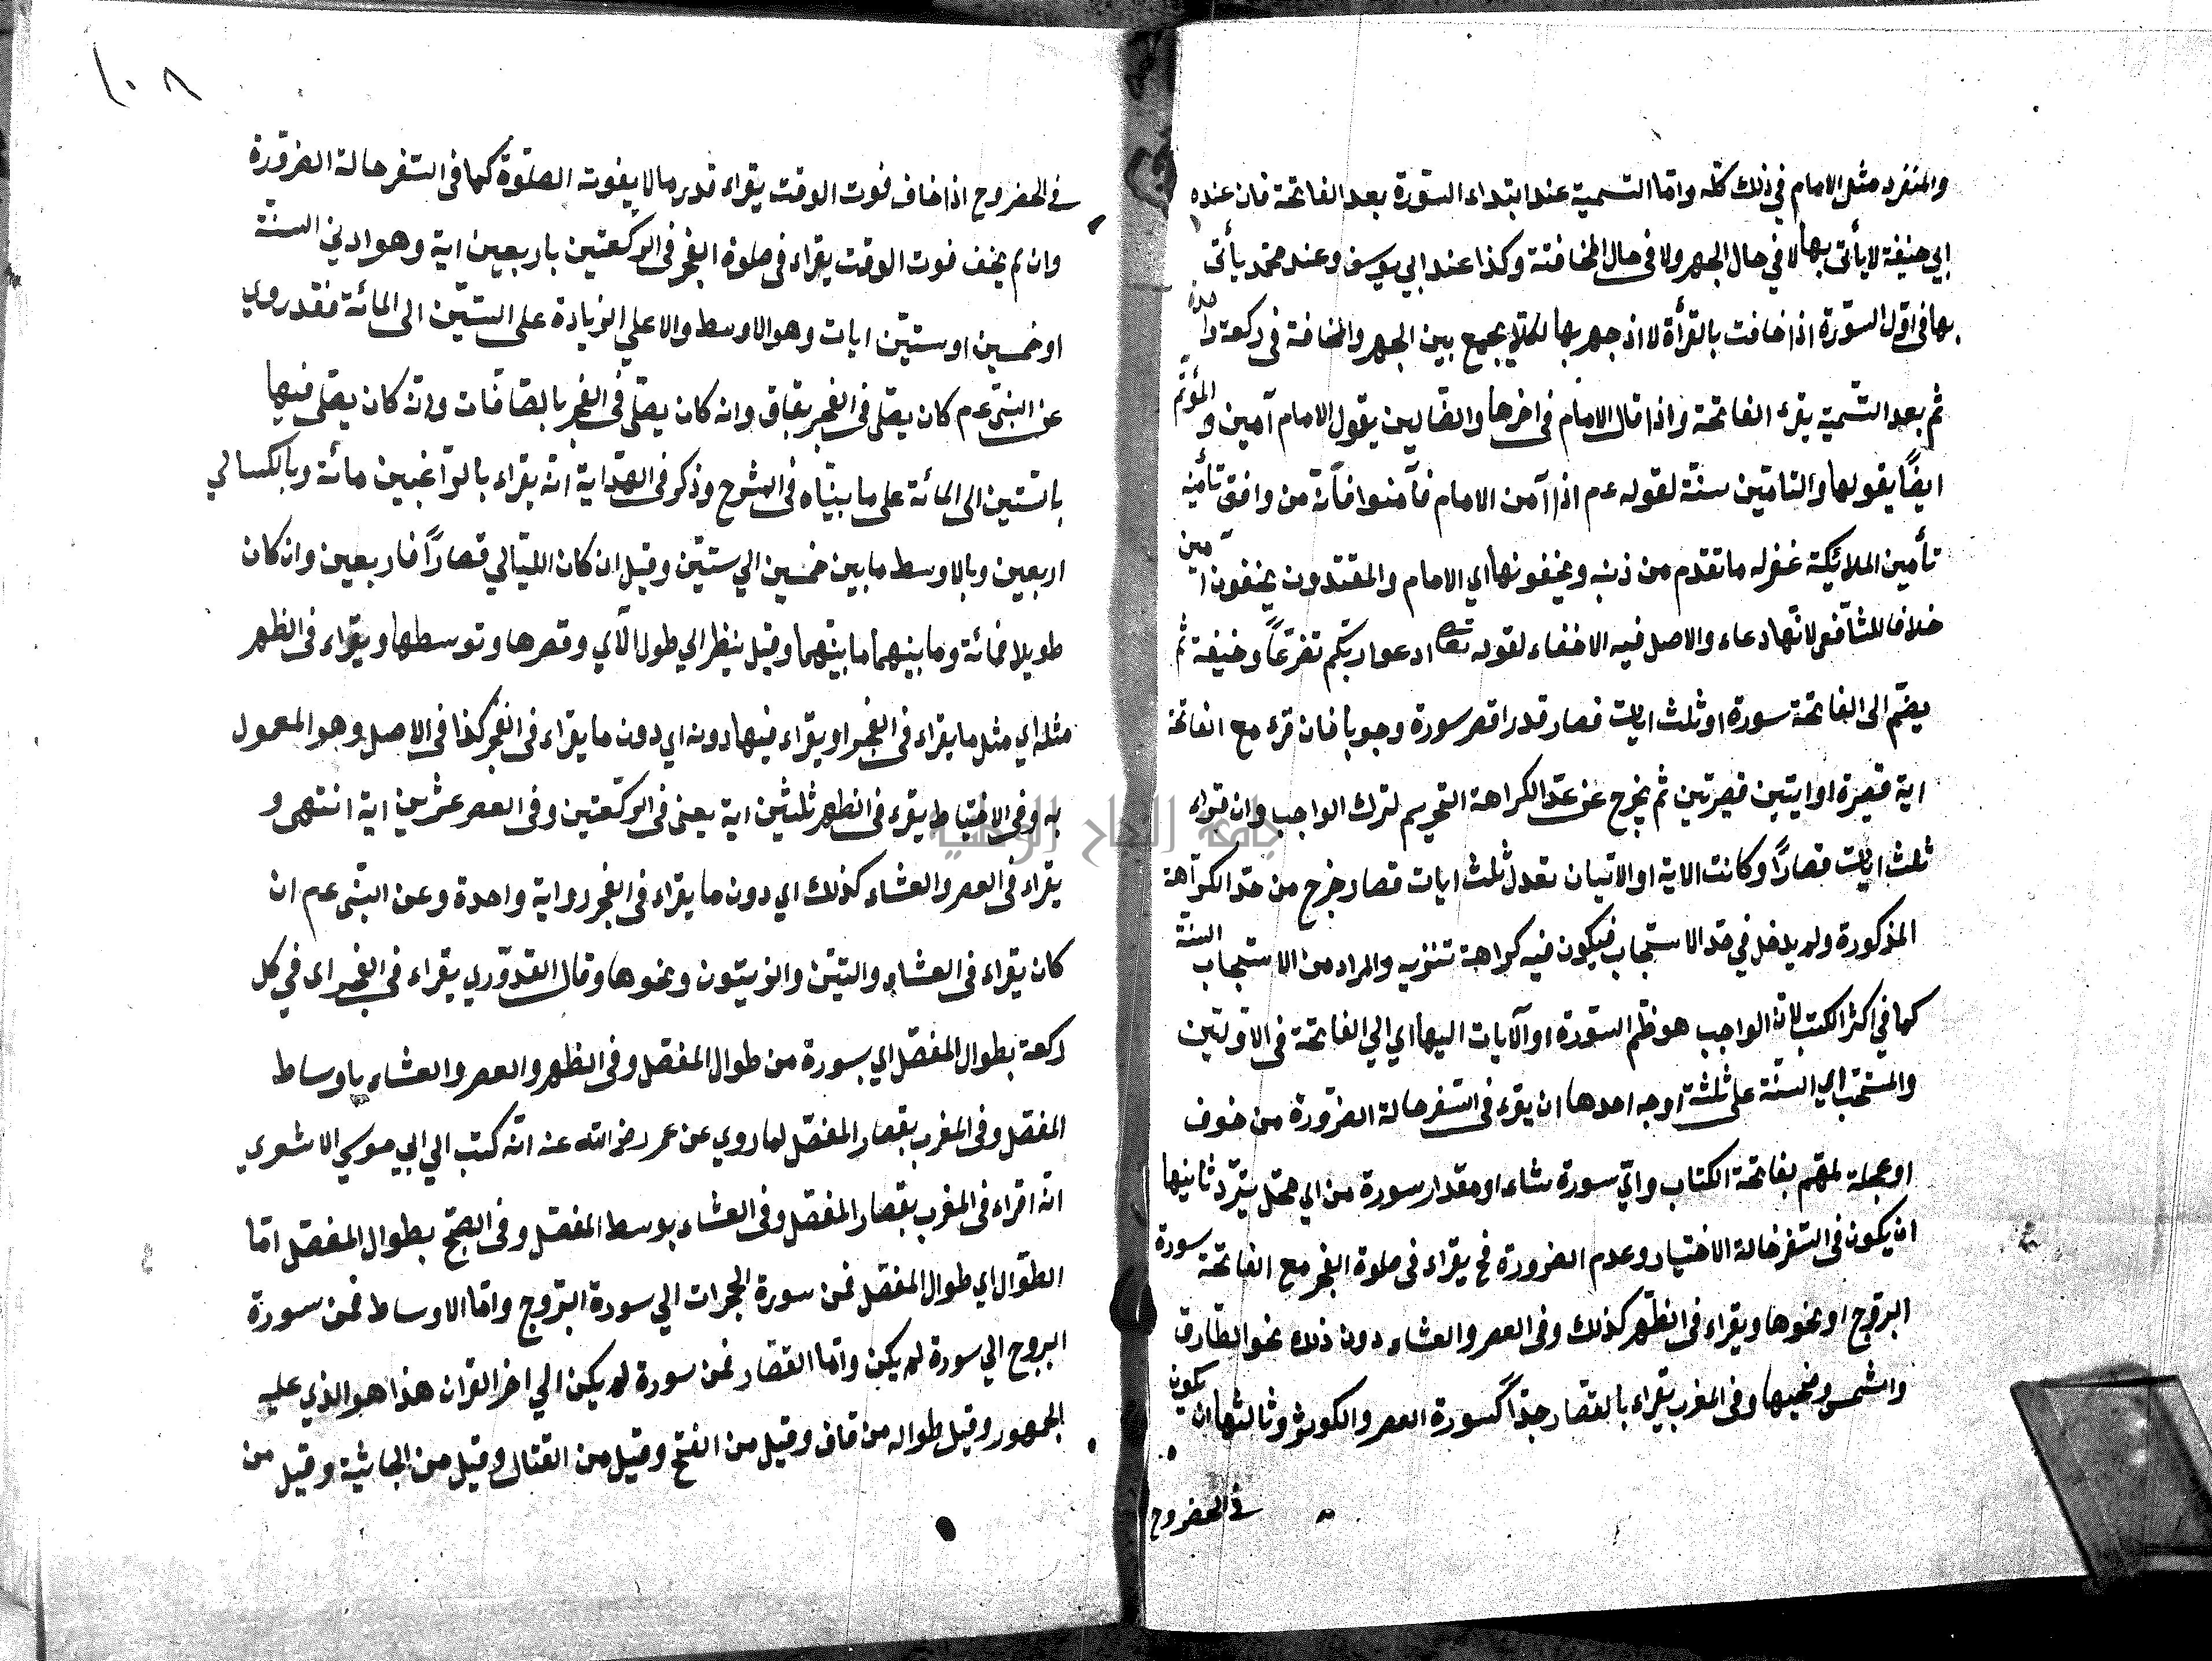 والمنفرد مثل الامام في ذلك كله واما التسمية عند ابتداء السورة بعد الفاتحة فان عنده
ابي حنيفة لا يأتى بها لا في حال الجهر ولا فى حال المخافتة وكذا عند ابي يوسف وعند محمد يأتى
بها فى اول السورة اذا خافت بالقرأة لا اذ جهر بها لئلا يجمع بين الجهر والمخافة فى ركعة واحدة
ثم بعد التسمية يقرء الفاتحة واذا قال الامام فى اخرها والضالين يقول الامام آمين والمؤتم
ايضًا يقولها والتامين سنة لقوله عم اذا آمن الامام فآمنوا فانه من وافق تأمينه
تأمين الملائكة غفر له ما تقدم من ذنبه ويخفونها اي الامام والمقتدون يخفون آمين
خلافا للشافعى لانها دعاء والاصل فيه الاخفاء لقوله تعا ادعوا ربكم تضرعًا وخفية ثم
يضم الى الفاتحة سورة او ثلث ايات قصار قدر اقصر سورة وجوبا فان قرء مع الفاتحة
اية قصيرة او ايتين قصيرتين لم يخرج عن حد الكراهة التحريم لترك الواجب وان قراء
ثلث ايات قصارًا وكانت الاية او الاتيان تعدل ثلث ايات قصار خرج من حد الكراهة
المذكورة ولم يدخل في حد الاستحباب فيكون فيه كراهة تنزيه والمراد من الاستحباب السنة
كما في اكثر الكتب لان الواجب هو ضم السورة او الآيات اليها اي الي الفاتحة فى الاولتين
والمستحب اي السنة على ثلثة اوجه احدها ان يقرء فى السفر حالة الضرورة من خوف
او عجلة لمهم بفاتحة الكتاب واي سورة شاء او مقدار سورة من اي محل يتيسر ثانيها
ان يكون فى السفر حالة الاختيار وعدم الضرورة فح يقراء فى صلوة الفجر مع الفاتحة سورة
البروج او نحوها ويقراء فى الظهر كذلك وفى العصر والعشاء دون ذلك نحو الطارق
والشمس وضحيها وفى المغرب يقراء بالقصار جدًا كسورة العصر والكوثر وثالثها ان يكون
في الحضر وح
١٠٨
في الحضر وح اذا خاف فوت الوقت يقراء قدر ما لا يفوت الصلوة كما فى السفر حالة الضرورة
وان لم يخف فوت الوقت يقراء فى صلوة الفجر فى الركعتين باربعين اية وهو ادنى السنة
او خمسين او ستين ايات وهو الاوسط والاعلي الزيادة على الستين الى المائة فقد روي
عن النبى عم كان يصلى فى الفجر بقاق وانه كان يصلى فى الفجر بالصافات وانه كان يصلى فيها
بالستين الى المائة على ما بيناه فى الشرح وذكر فى الهداية انه يقراء بالراغبين مائة وبالكسالي
اربعين وبالاوسط ما بين خمسين الي ستين وقيل ان كان الليالي قصارًا فاربعين وان كان
طويلا فمائة وما بينهما ما بينهما وقيل ينظر الي طول الآي وقصرها وتوسطها ويقراء فى الظهر
مثله اي مثل ما يقراء فى الفجر او يقراء فيها دونه اي دون ما يقراء فى الفجر كذا فى الاصل وهو المعمول
به وفى الاختياط يقرء فى الظهر ثلثين اية يعنى فى الركعتين وفى العصر عشرين اية انتهى و
يقراء فى العصر والعشاء كذلك اي دون ما يقراء فى الفجر رواية واحدة وعن النبى عم ان
كان يقراء فى العشاء والتين والزيتون ونحوها وقال القدوري يقراء فى الفجر اى في كل
ركعة بطوال المفصل اي بسورة من طوال المفصل وفى الظهر والعصر والعشاء باوساط
المفصل وفى المغرب بقصار المفصل لما روي عن عمر رضى الله عنه انه كتب الي ابي موسي الاشعري
انه اقراء فى المغرب بقصار المفصل وفى العشاء بوسط المفصل وفى الصبح بطوال المفصل اما
الطوال اي طوال المفصل فمن سورة الحجرات الي سورة البروج واما الاوساط فمن سورة
البروج الي سورة لم يكن واما القصار فمن سورة لم يكن الي اخر القران هذا هو الذي عليه
الجمهور وقيل طواله من قاف وقيل من الفتح وقيل من القتال وقيل من الجاثية وقيل من
جامعة النجاح الوطنية